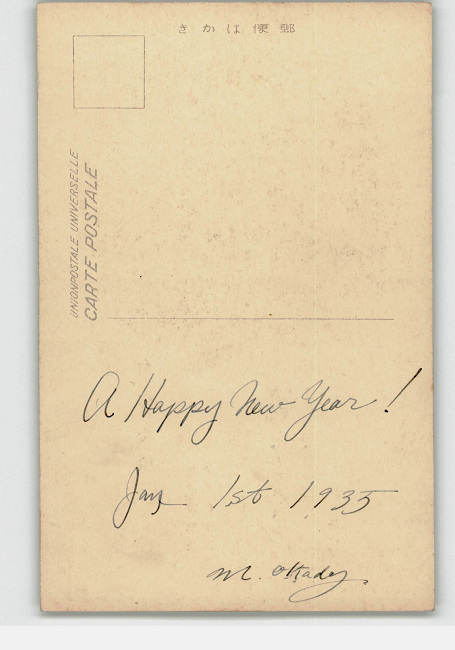 きかは便郵
UNIONPOSTALE UNIVERSELLE
CARTE POSTALE
A Happy New Year!
Jan 1st 1935
M.